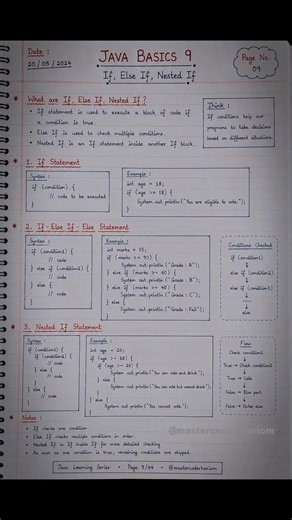 Date :
20 / 05 / 2024
JAVA BASICS 9
If, Else If, Nested If
Page No.
09
What are If, Else If, Nested If ?
• If statement is used to execute a block of code if
a condition is true.
• Else If is used to check multiple conditions.
• Nested If is an If statement inside another If block.
Think :
If conditions help our
programs to take decisions
based on different situations.
1. If Statement
Syntax :
if (condition) {
// code to be executed
}
Example :
int age = 18;
if (age >= 18) {
System.out.println("You are eligible to vote.");
}
2. If - Else If - Else Statement
Syntax :
if (condition1) {
// code
} else if (condition2) {
// code
} else {
// code
}
Example :
int marks = 75;
if (marks >= 90) {
System.out.println("Grade : A");
} else if (marks >= 60) {
System.out.println("Grade : B");
} else if (marks >= 40) {
System.out.println("Grade : C");
} else {
System.out.println("Grade : Fail");
}
Conditions Checked
if (condition1)
↓
else if (condition2)
↓
else if (condition3)
↓
else
3. Nested If Statement
Syntax :
if (condition1) {
if (condition2) {
// code
} else {
// code
}
} else {
// code
}
Example :
int age = 20;
if (age >= 18) {
if (age >= 21) {
System.out.println("You can vote and drink");
} else {
System.out.println("You can vote but cannot drink");
}
} else {
System.out.println("You cannot vote.");
}
Flow
Check condition1
↓
True → Check condition2
↓
True → Code
↓
False → Else part
↓
False → Outer else
Notes :
• If checks one condition.
• Else If checks multiple conditions in order.
• Nested If is If inside If for more detailed checking.
• As soon as one condition is true, remaining conditions are skipped.
@mastercoderhariom
Java Learning Series • Page 9/49 • @mastercoderhariom